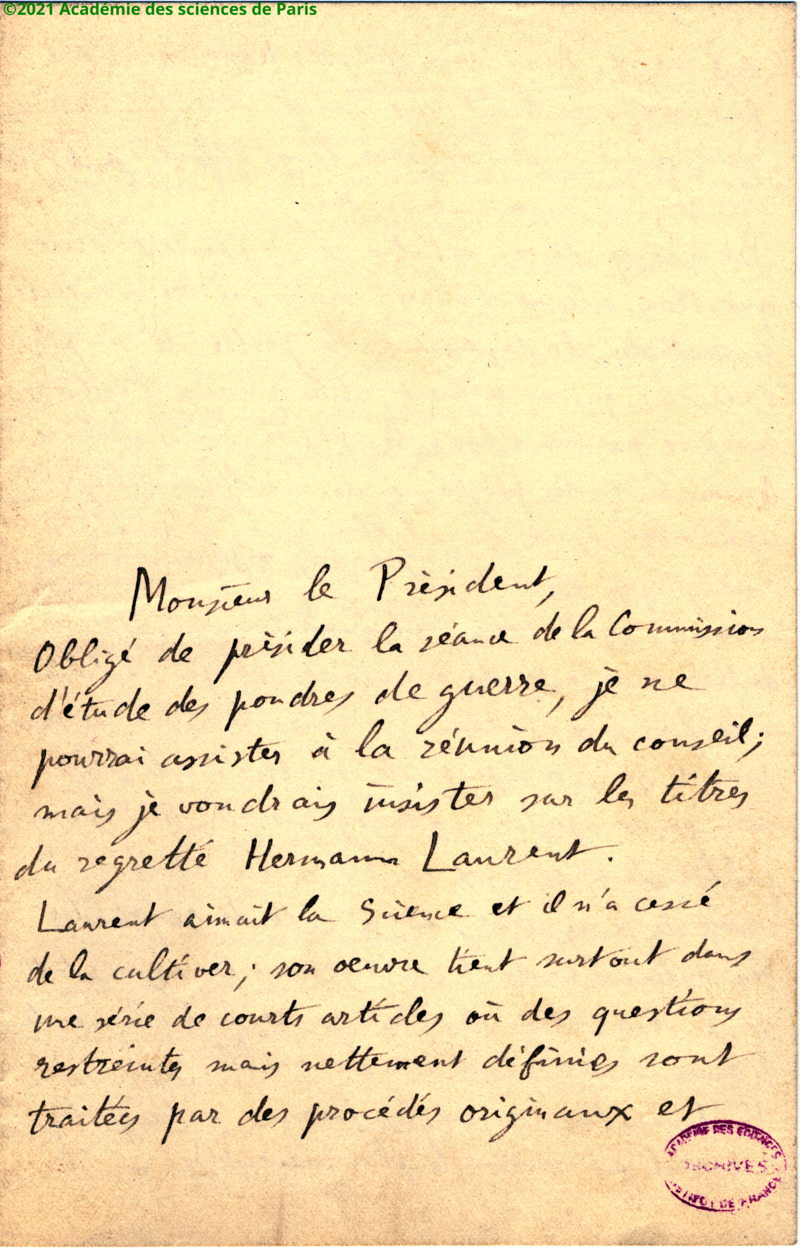 ©2021 Académie des sciences de Paris
Monsieur le Président,
Obligé de présider la séance de la Commission
d'étude des poudres de guerre, je ne
pourrai assister à la réunion du conseil;
mais je voudrais insister sur les titres
du regretté Hermann Laurent.
Laurent aimait la Science et il n'a cessé
de la cultiver; son oeuvre tient surtout dans
une série de courts articles où des questions
restreintes mais nettement définies sont
traitées par des procédés originaux et
ACADEMIE DES SCIENCES
ARCHIVES
INSTITUT DE FRANCE